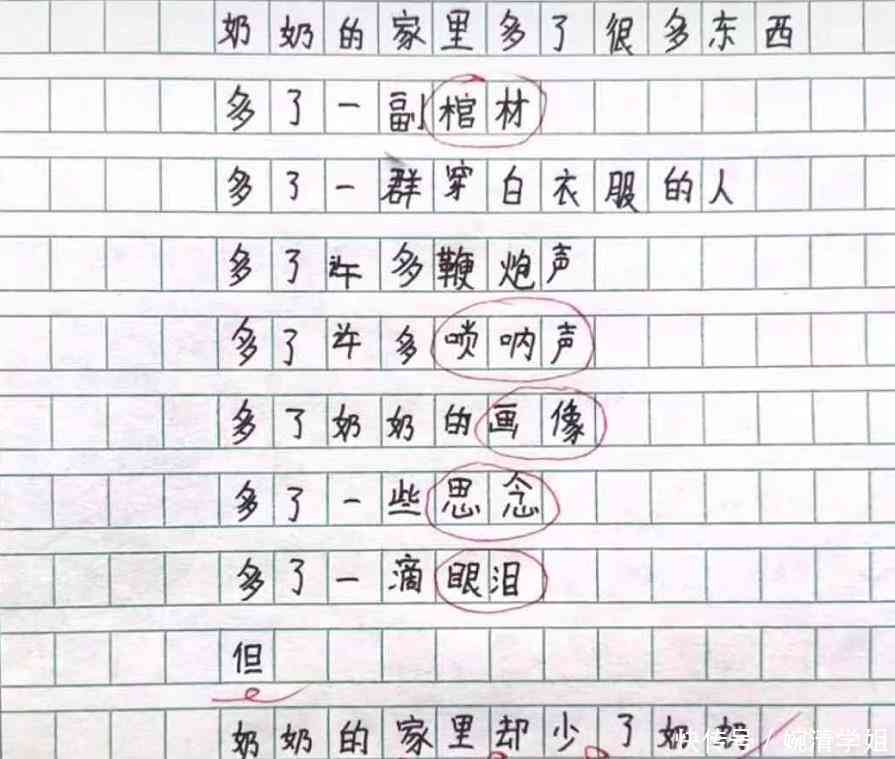 奶奶的家里多了很多东西
多了一副棺材
多了一群穿白衣服的人
多了许多鞭炮声
多了许多唢呐声
多了奶奶的画像
多了一些思念
多了一滴眼泪
但
奶奶的家里却少了奶奶
快传号 / 婉清学姐